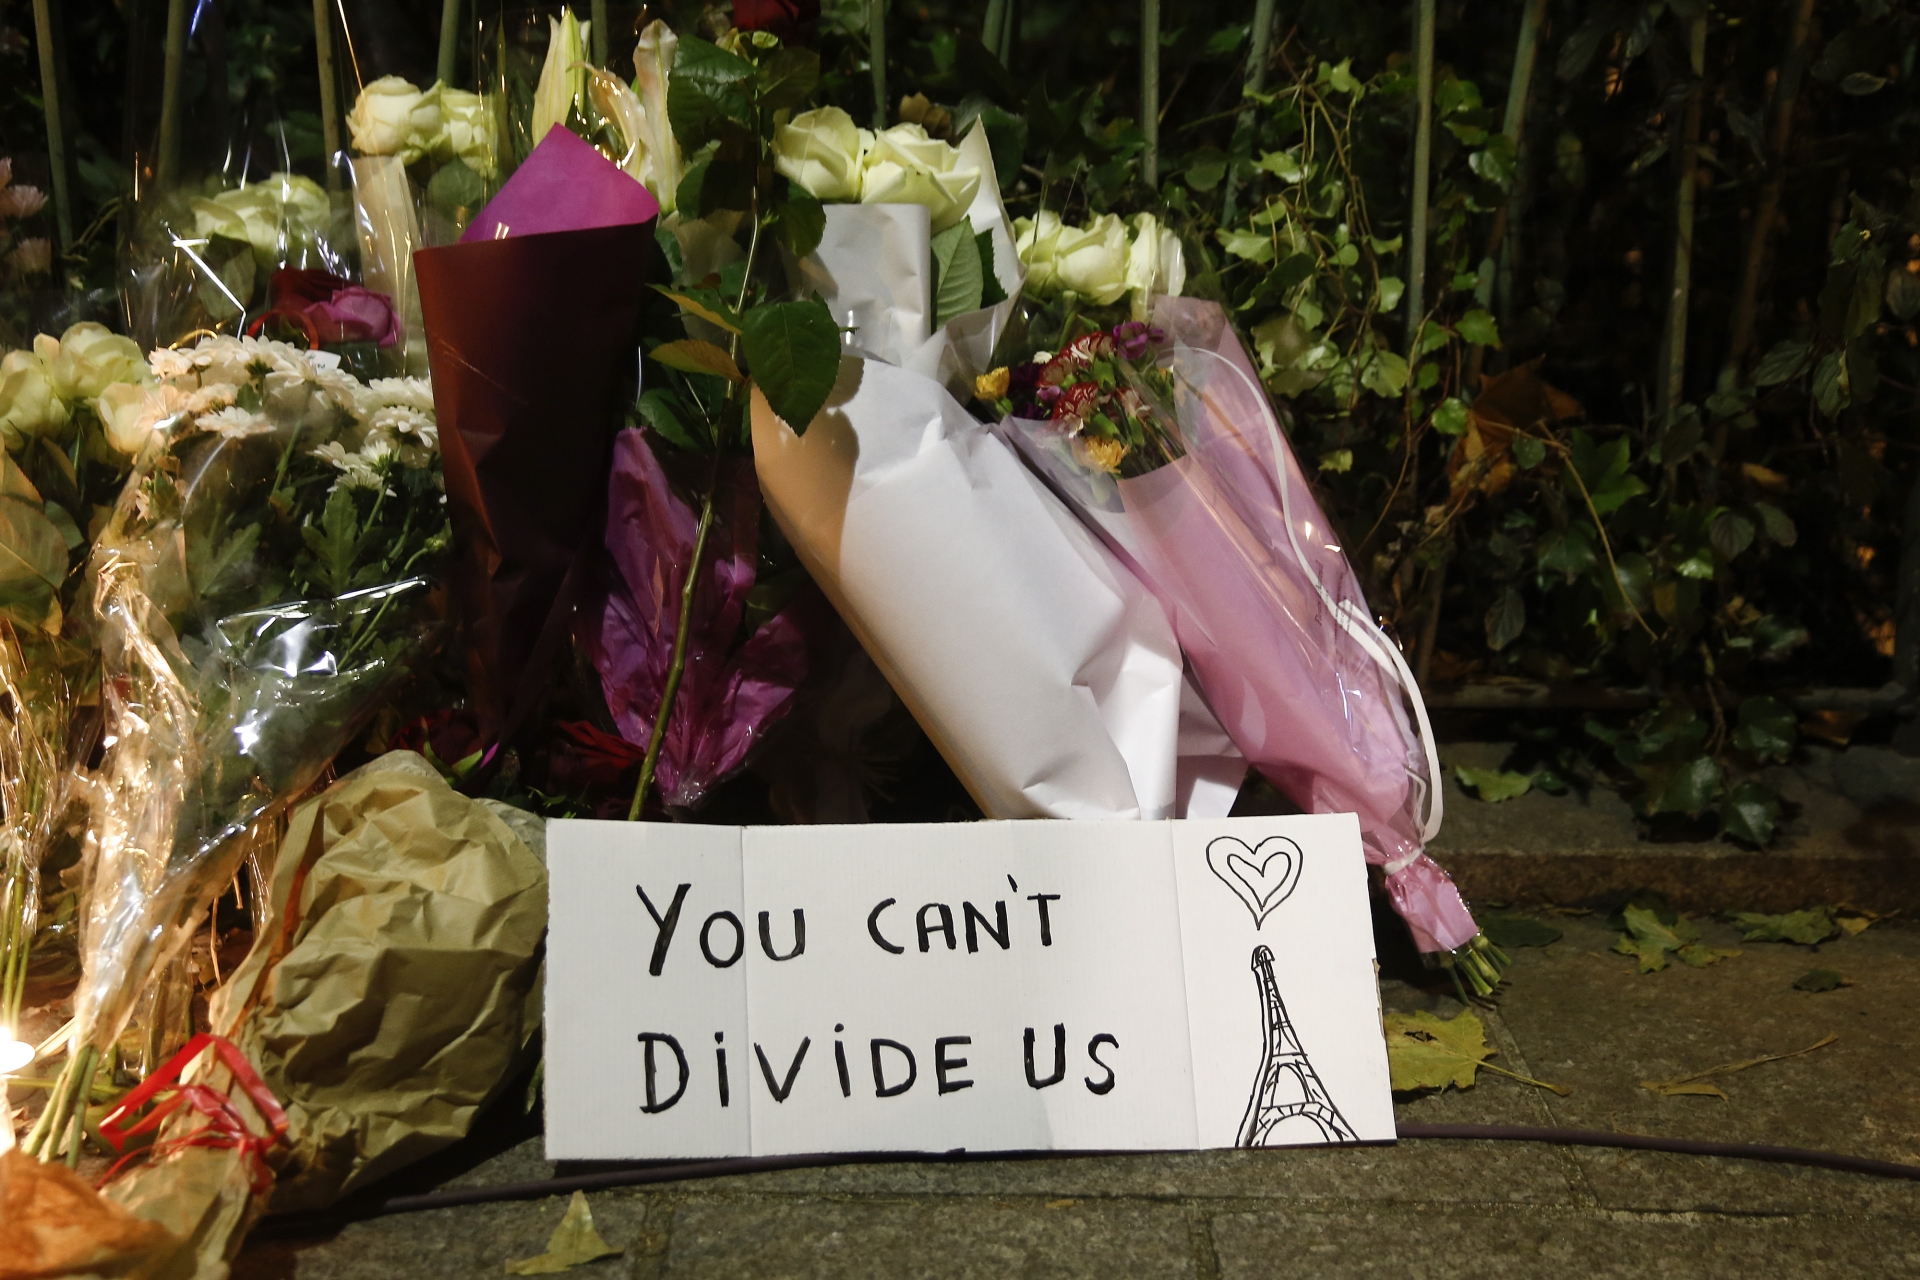 YOU CAN'T
DiViDE US